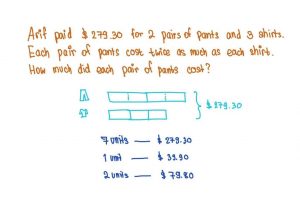 Arif paid $279.30 for 2 pairs of pants and 3 shirts.
Each pair of pants cost twice as much as each shirt.
How much did each pair of pants cost?
$279.30
7 units — $279.30
1 unit — $39.90
2 units — $79.80